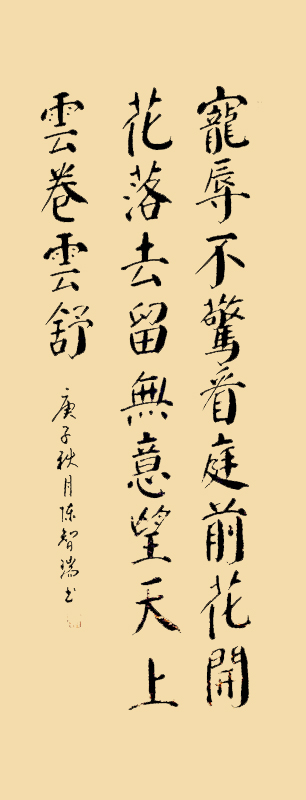 寵辱不驚看庭前花開
花落去留無意望天上
雲卷雲舒
庚子秋月陈智瑞书